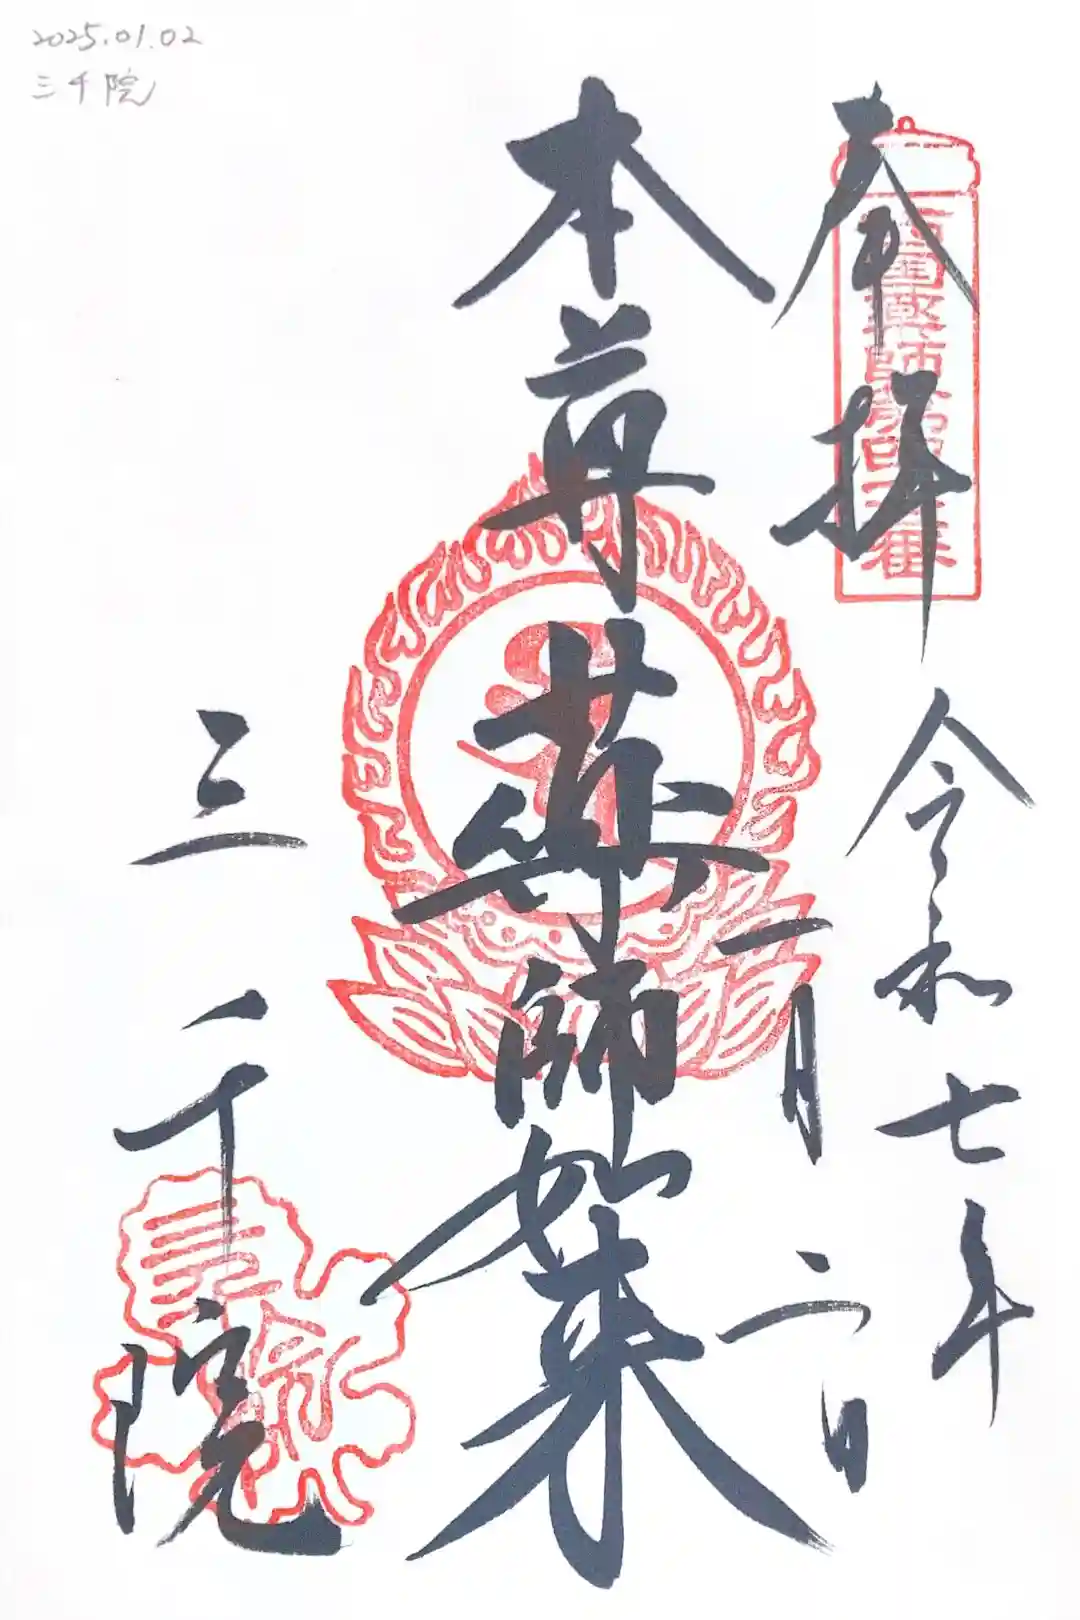 2025.01.02
三千院
奉拝
西国薬師第四十五番
令和七年
一月二日
本尊薬師如来
三千院